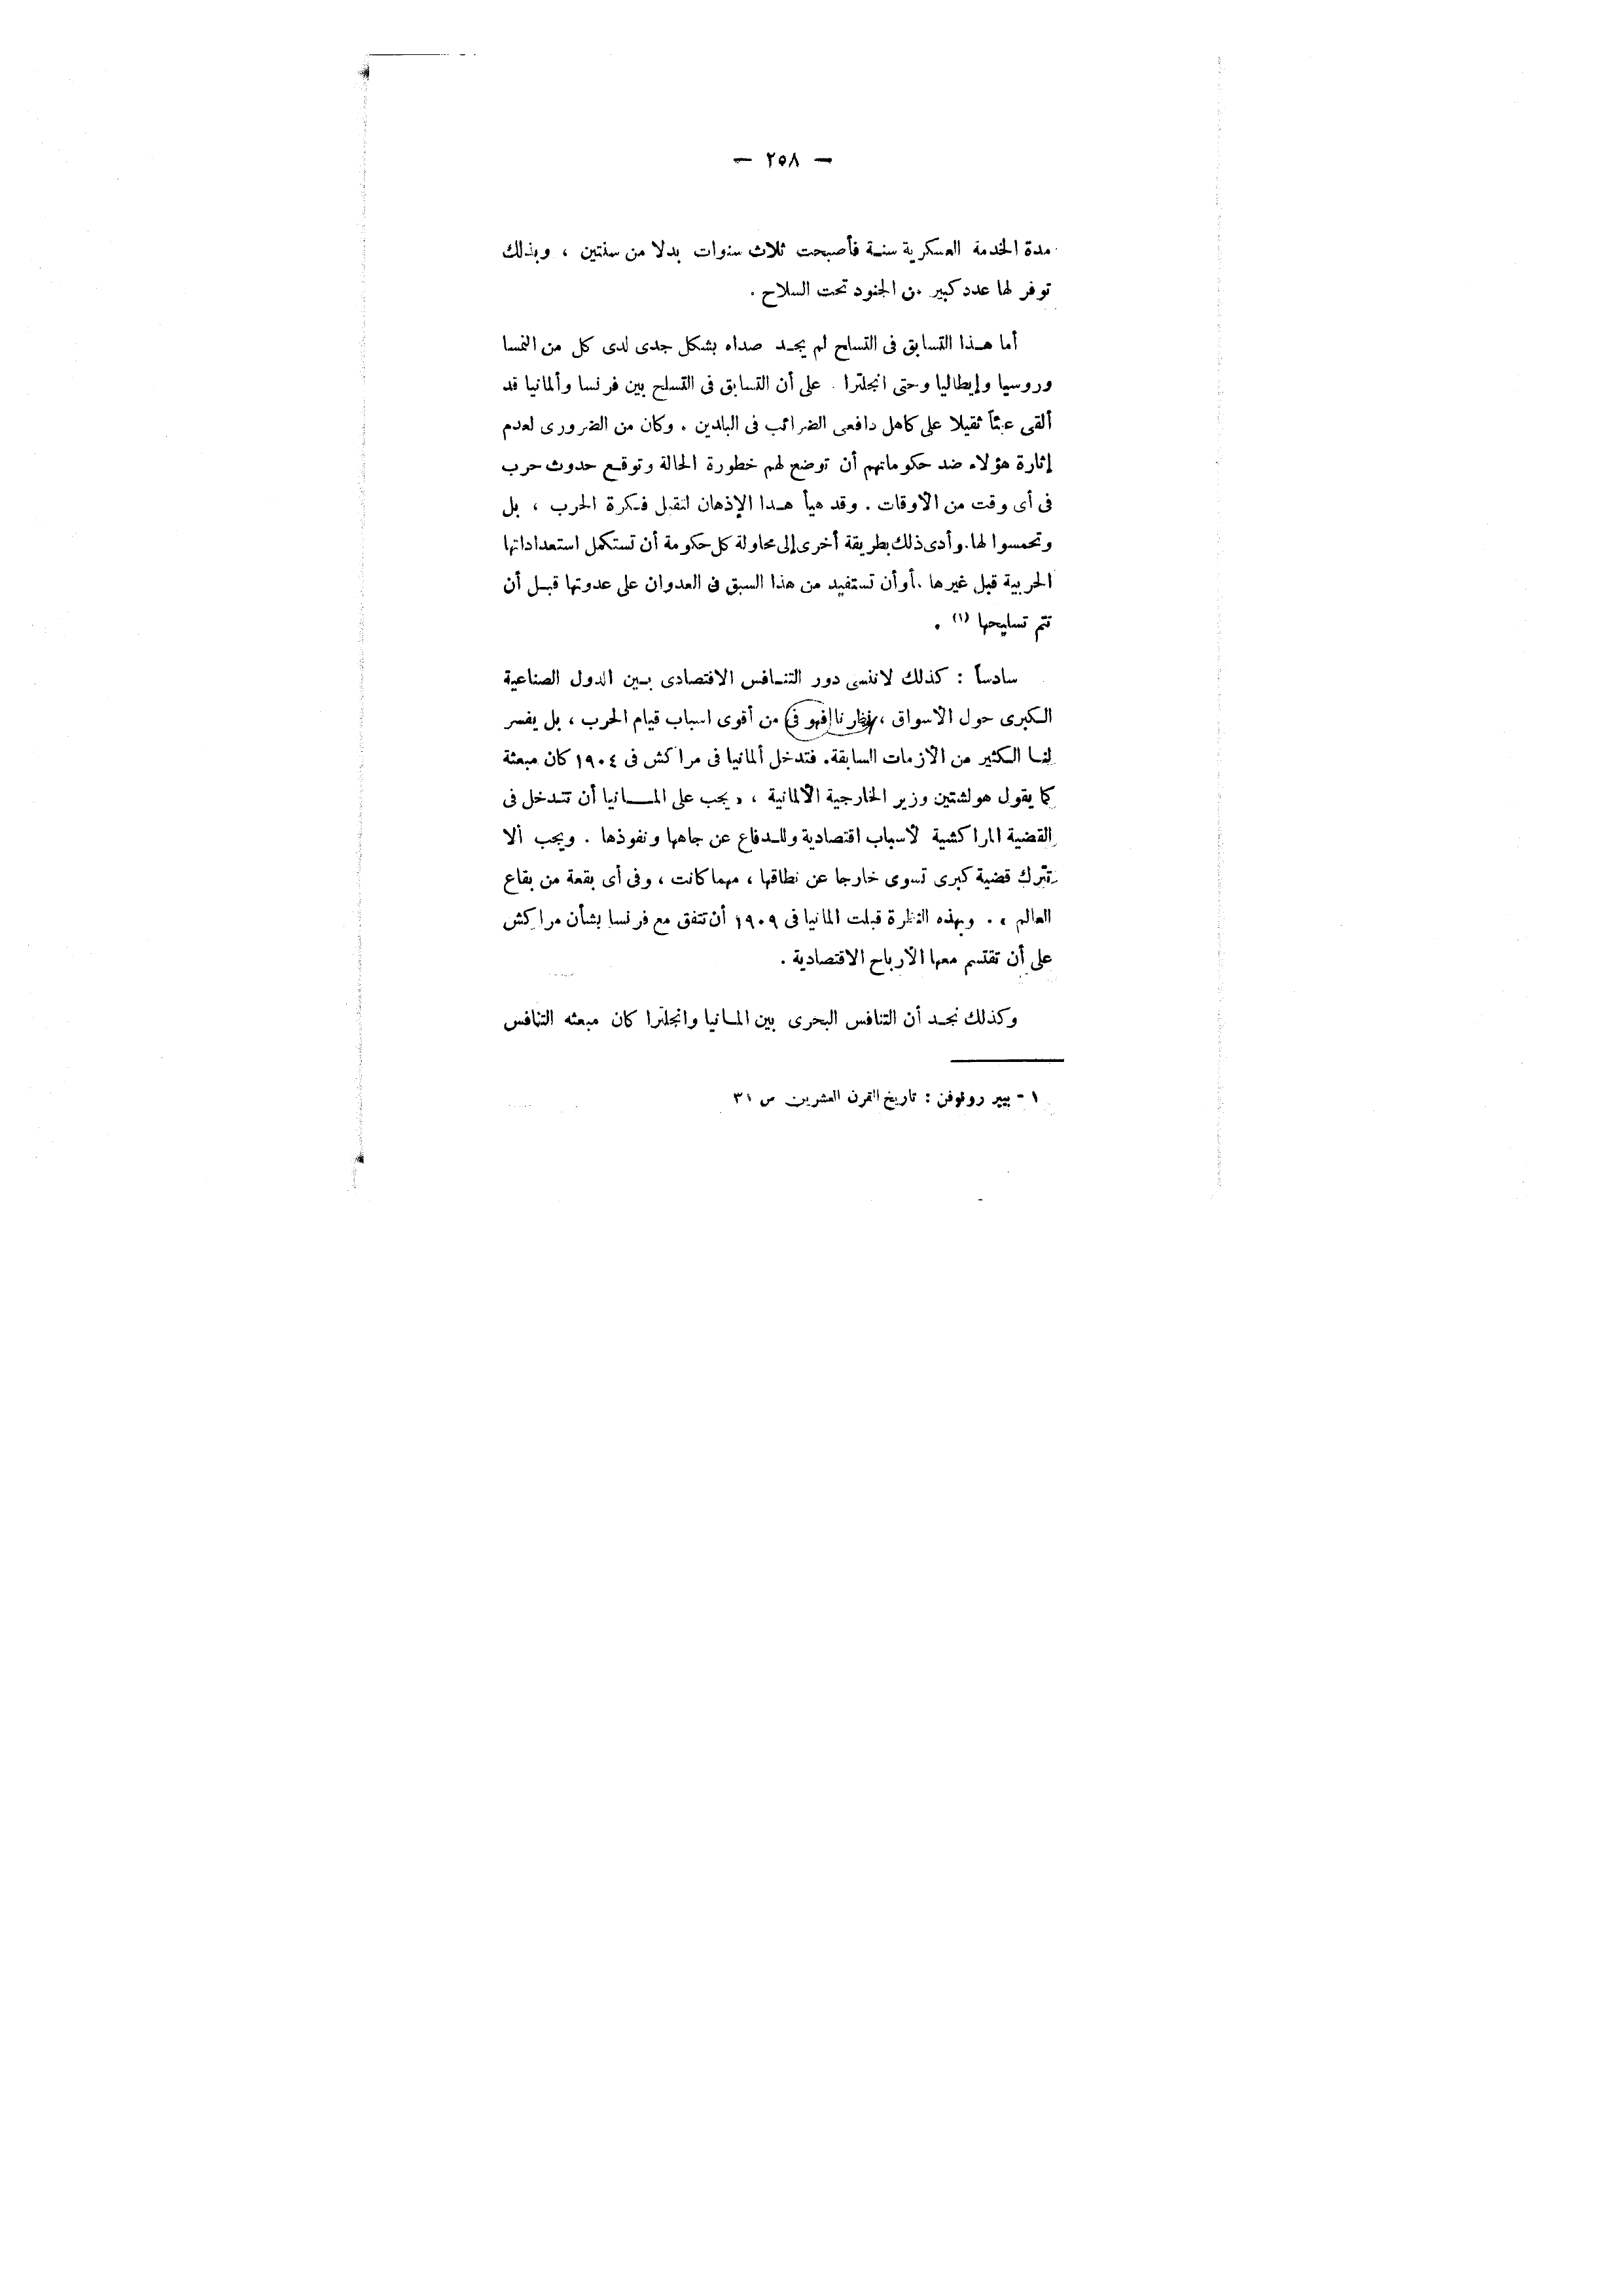 — ٢٥٨ —
مدة الخدمة العسكرية سنة فأصبحت ثلاث سنوات بدلا من سنتين ، وبذلك
توفر لها عدد كبير من الجنود تحت السلاح .
أما هذا التسابق فى التسلح لم يجد صداه بشكل جدى لدى كل من النمسا
وروسيا وإيطاليا وحتى انجلترا . على أن التسابق فى التسلح بين فرنسا وألمانيا قد
ألقى عبئاً ثقيلا على كاهل دافعى الضرائب فى البلدين . وكان من الضرورى لعدم
إثارة هؤلاء ضد حكوماتهم أن توضع لهم خطورة الحالة وتوقع حدوث حرب
فى أى وقت من الأوقات . وقد هيأ هدا الإذهان لتقبل فكرة الحرب ، بل
وتحمسوا لها . وأدى ذلك بطريقة أخرى إلى محاولة كل حكومة أن تستكمل استعداداتها
الحربية قبل غيرها . أو أن تستفيد من هذا السبق فى العدوان على عدوتها قبل أن
تتم تسليحها (١) .
سادساً : كذلك لاننسى دور التنافس الاقتصادى بين الدول الصناعية
الكبرى حول الأسواق ، نظرنا فهو فى من أقوى اسباب قيام الحرب ، بل يفسر
لنا الكثير من الأزمات السابقة . فتدخل ألمانيا فى مراكش فى ١٩٠٤ كان مبعثة
كما يقول هولشتين وزير الخارجية الألمانية ، « يجب على المانيا أن تتدخل فى
القضية المراكشية لأسباب اقتصادية وللدفاع عن جاهها ونفوذها . ويجب ألا
تترك قضية كبرى تسوى خارجا عن نطاقها ، مهما كانت ، وفى أى بقعة من بقاع
العالم » . وبهذه النظرة قبلت المانيا فى ١٩٠٩ أن تتفق مع فرنسا بشأن مراكش
على أن تقتسم معها الأرباح الاقتصادية .
وكذلك نجد أن التنافس البحرى بين المانيا وانجلترا كان مبعثه التنافس
١ - بيير رونوفن : تاريخ القرن العشرين ص ٣١